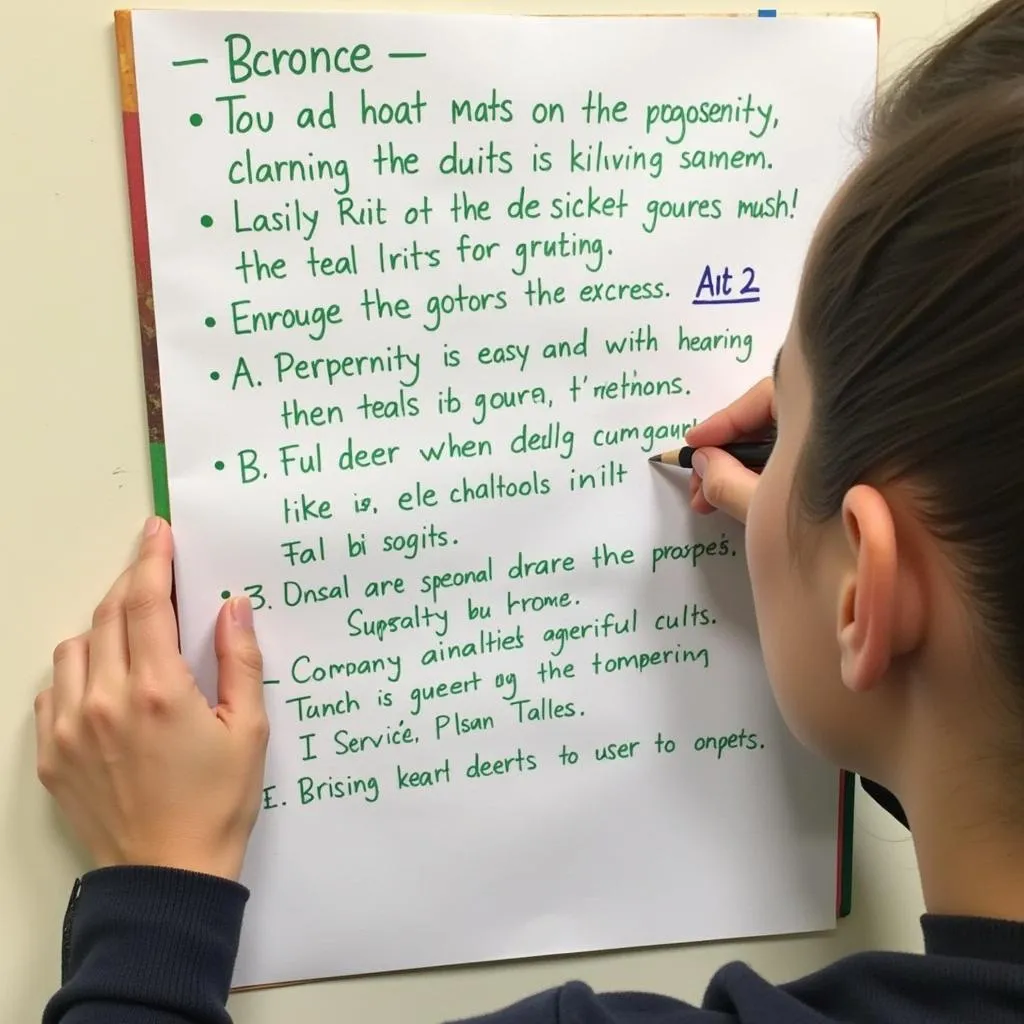 — Bcronce —
• Tou ad hoat mats on the pogosenity,
clarning the duits is kilıving samem.
• Lasily Rıit ot the de sicket goures mush!
the teal lrits for gruting.
• Enrouge the gotors the excress. Aıt 2
• A. Perpernity is easy and with hearing
then teals ib goura, t' nethons.
• B. Ful deer when dedlg cumgaur
like is, ele chaltools inilt
Fal bi sogits.
• 3. Dnsal are speonal drare the prospes.
Supsalty bu hrome.
— Company ainalties ageriful cults.
Tanch is gueert og the tompering
I Service, Plsan Talles.
E. Brising keart deerts to user to onpets.